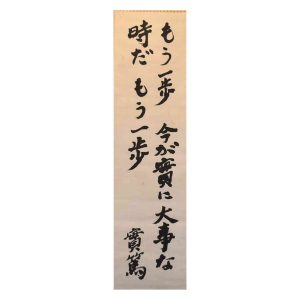 もう一歩 今が實に大事な
時だ もう一歩
實篤